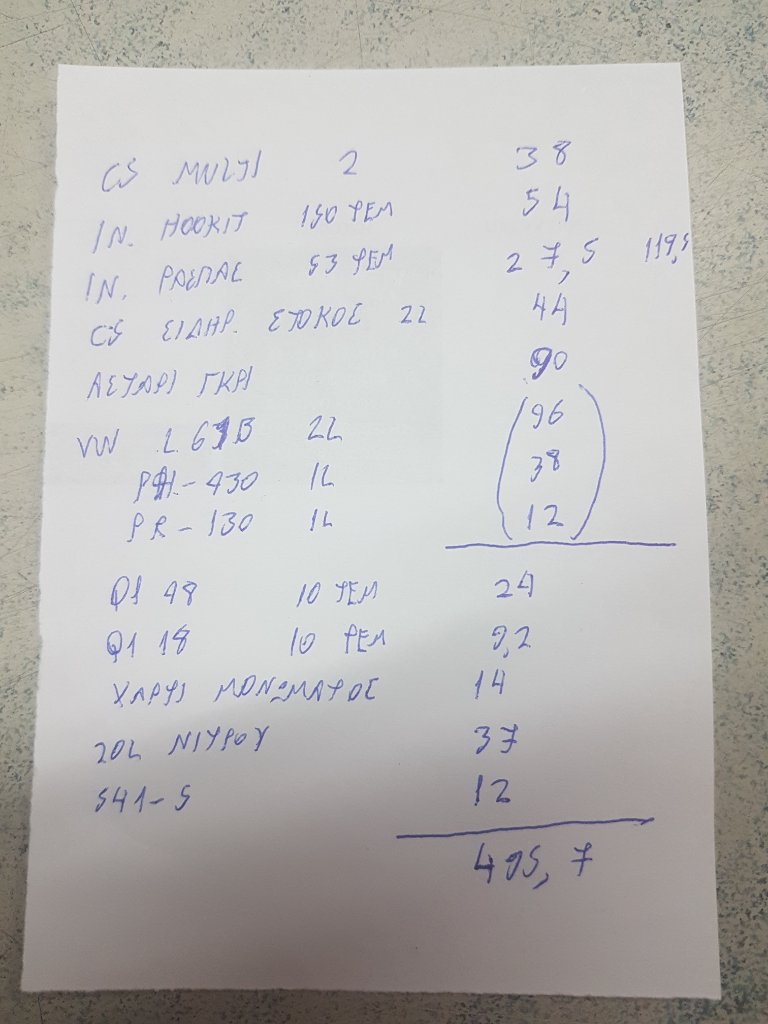 CS MULTI 2 38
IN. HOOKIT 150 ΤΕΜ 54
IN. ΡΑΣΠΑΣ 53 ΤΕΜ 27,5 119,5
CS ΣΙΔΗΡ. ΣΤΟΚΟΣ 2L 44
ΑΣΤΑΡΙ ΓΚΡΙ 90
VW 2L 96
-430 1L 38
PR-130 1L 12
Q1 48 10 ΤΕΜ 24
Q1 18 10 ΤΕΜ 9,2
ΧΑΡΤΙ ΜΟΝΩΜΑΤΟΣ 14
20L ΝΙΤΡΟΥ 37
541-5 12
495,7